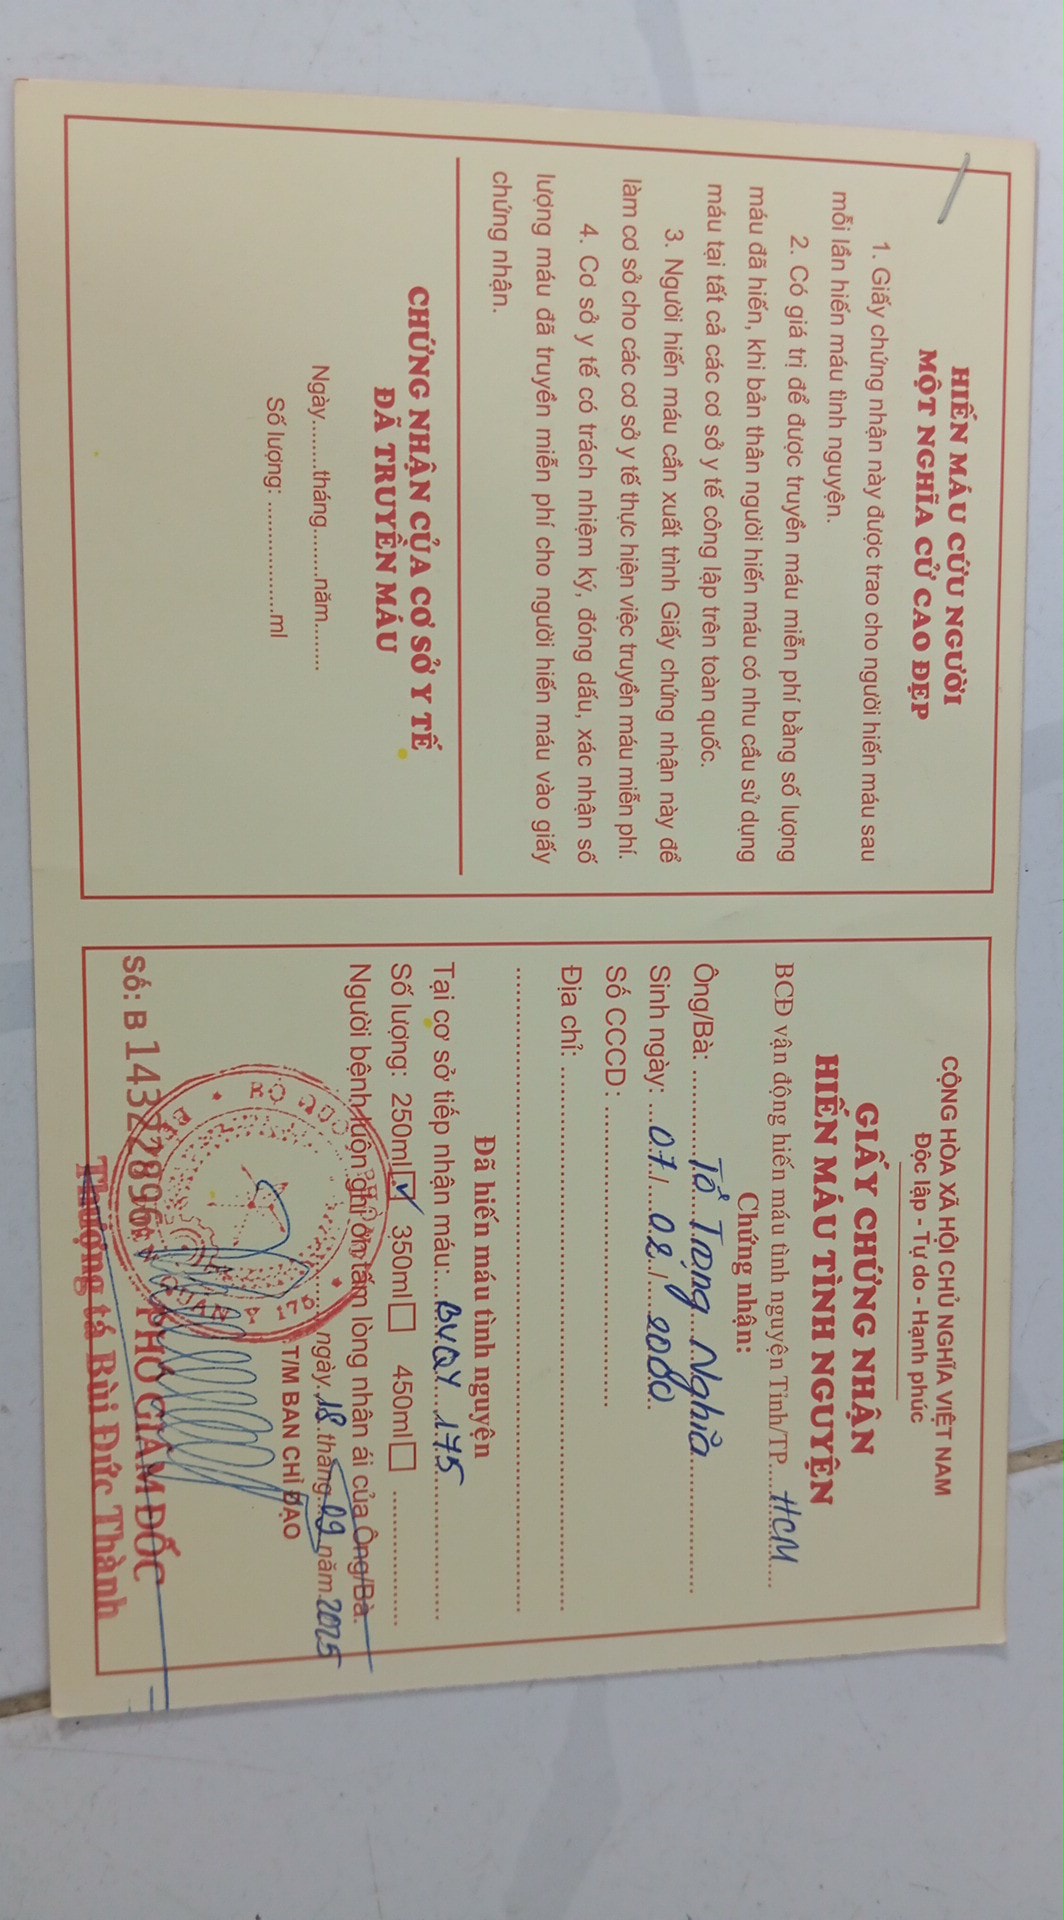 HIẾN MÁU CỨU NGƯỜI
MỘT NGHĨA CỬ CAO ĐẸP
1. Giấy chứng nhận này được trao cho người hiến máu sau
mỗi lần hiến máu tình nguyện.
2. Có giá trị để được truyền máu miễn phí bằng số lượng
máu đã hiến, khi bản thân người hiến máu có nhu cầu sử dụng
máu tại tất cả các cơ sở y tế công lập trên toàn quốc.
3. Người hiến máu cần xuất trình Giấy chứng nhận này để
làm cơ sở cho các cơ sở y tế thực hiện việc truyền máu miễn phí.
4. Cơ sở y tế có trách nhiệm ký, đóng dấu, xác nhận số
lượng máu đã truyền miễn phí cho người hiến máu vào giấy
chứng nhận.
CHỨNG NHẬN CỦA CƠ SỞ Y TẾ
ĐÃ TRUYỀN MÁU
Ngày........tháng........năm........
Số lượng: ................ml
CỘNG HÒA XÃ HỘI CHỦ NGHĨA VIỆT NAM
Độc lập - Tự do - Hạnh phúc
GIẤY CHỨNG NHẬN
HIẾN MÁU TÌNH NGUYỆN
BCĐ vận động hiến máu tình nguyện Tỉnh/TP...HCM...
Chứng nhận:
Ông/Bà: ...Tô Trọng Nghĩa...
Sinh ngày: ...07.../...02.../...2080...
Số CCCD: ...
Địa chỉ: ...
Đã hiến máu tình nguyện
Tại cơ sở tiếp nhận máu:...BVQY 175...
Số lượng: 250ml ☑ 350ml ☐ 450ml ☐ ...
Người bệnh luôn ghi ơn tấm lòng nhân ái của Ông/Bà.
ngày 18 tháng 09 năm 2025
T/M BAN CHỈ ĐẠO
PHÓ GIÁM ĐỐC
Số: B 14322896
Thượng tá Bùi Đức Thành